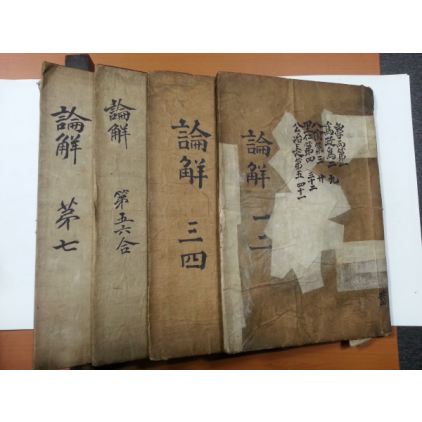 學而第一
爲政第二 九
八佾第三 廾
里仁第四 三十二
公冶長第五 四十一
論解 一二
論解 三四
論解 第五六合
論解 第七